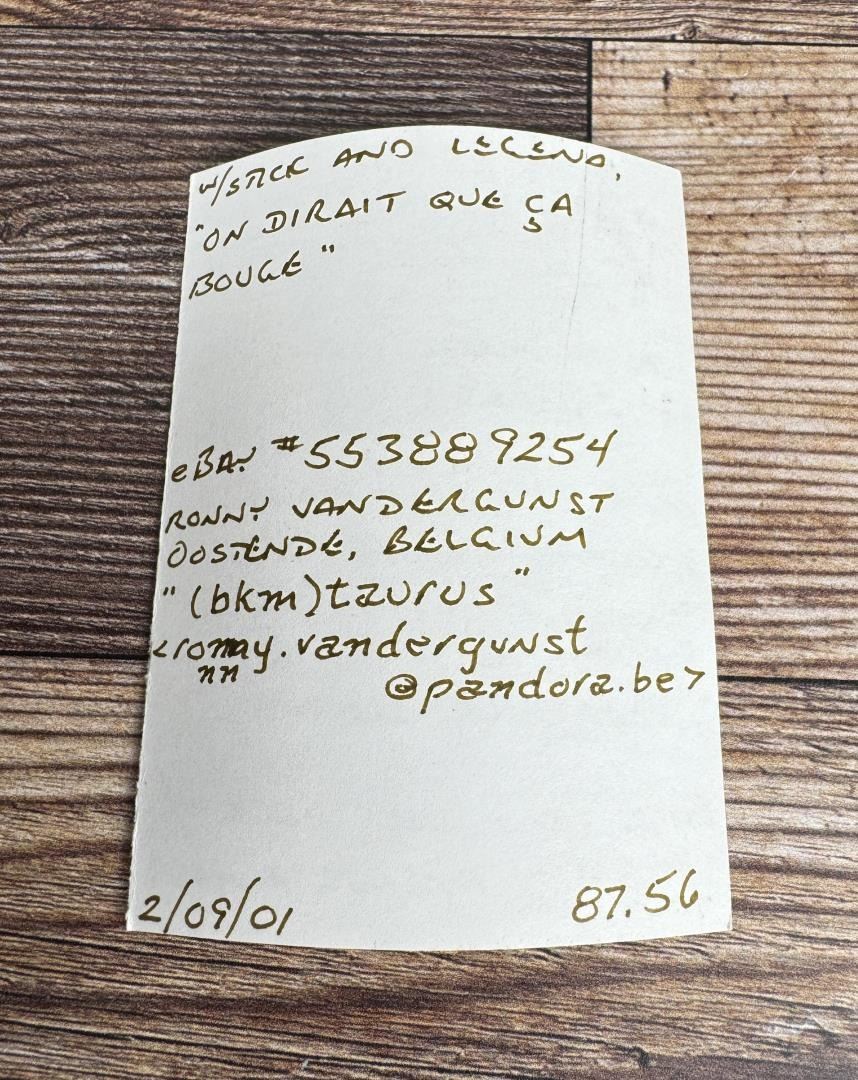 W/STICK AND LEGEND,
"ON DIRAIT QUE ÇA
BOUGE"
eBAY #553889254
RONNY VANDERGUNST
OOSTENDE, BELGIUM
"(bkm)taurus"
<ronny.vandergunst
nn
@pandora.be>
2/09/01 87.56